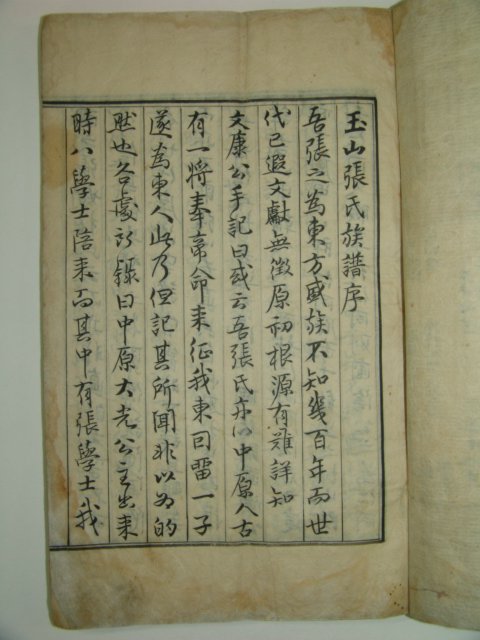 玉山張氏族譜序
吾張之為東方盛族不知幾百年而世
代已遐文獻無徵原初根源有難詳知
文康公手記曰或云吾張氏亦以中原人古
有一將奉帝命来征我東因留一子
遂為東人此乃但記其所聞非以为的
然也各處所錄曰中原大光公主出来
時八學士陪来而其中有張學士我